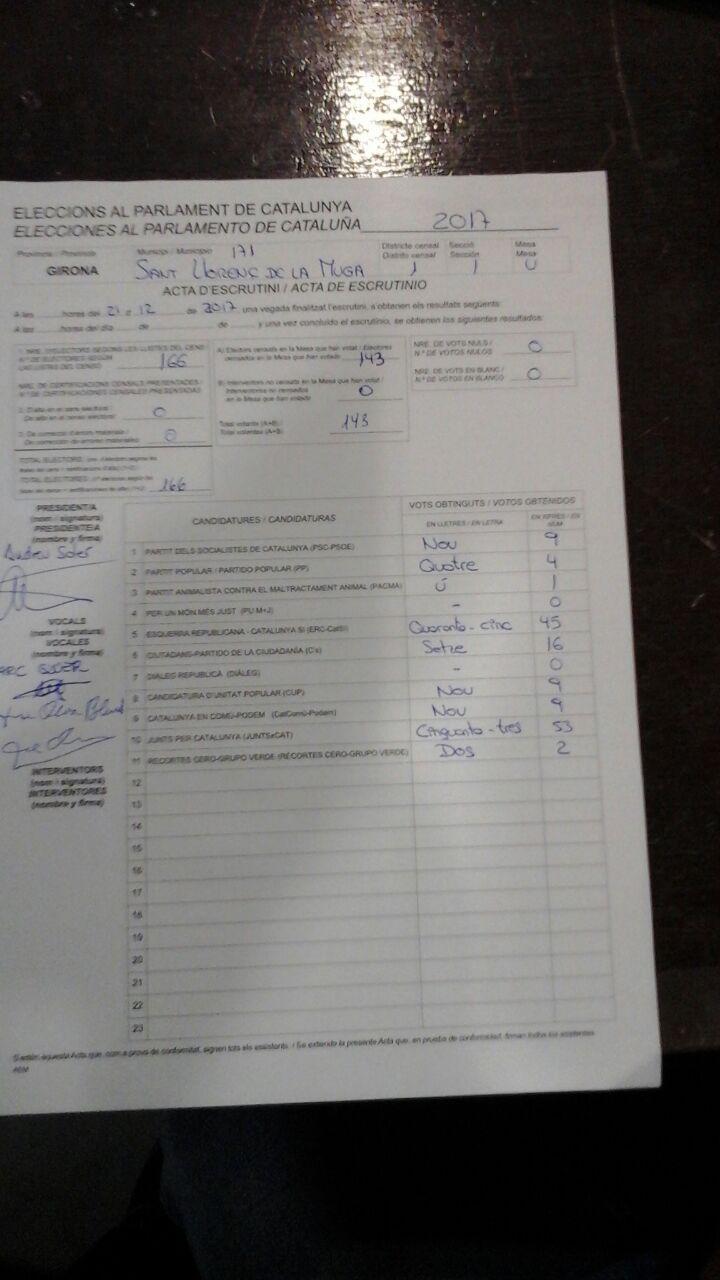 ELECCIONS AL PARLAMENT DE CATALUNYA
ELECCIONES AL PARLAMENTO DE CATALUÑA 2017
Província / Provincia Municipi / Municipio 171 Districte censal Secció Mesa
Distrito censal Sección Mesa
GIRONA SANT LLORENÇ DE LA MUGA 1 1 U
ACTA D'ESCRUTINI / ACTA DE ESCRUTINIO
A les hores del 21 d 12 de 2017, una vegada finalitzat l'escrutini, s'obtenen els resultats següents:
A las horas del día de de y una vez concluido el escrutinio, se obtienen los siguientes resultados:
1. NRE. D'ELECTORS SEGONS LES LLISTES DEL CENS
N.º DE ELECTORES SEGÚN
LAS LISTAS DEL CENSO 166
NRE. DE CERTIFICACIONS CENSALS PRESENTADES /
N.º DE CERTIFICACIONES CENSALES PRESENTADAS
2. D'alta en el cens electoral
De alta en el censo electoral 0
3. De correcció d'errors materials /
De corrección de errores materiales 0
TOTAL ELECTORS
TOTAL ELECTORES 166
A) Electors censats en la Mesa que han votat / Electores
censados en la Mesa que han votado 143
B) Interventors no censats en la Mesa que han votat /
Interventores no censados
en la Mesa que han votado 0
Total votants (A+B) /
Total votantes (A+B) 143
NRE. DE VOTS NULS /
N.º DE VOTOS NULOS 0
NRE. DE VOTS EN BLANC /
N.º DE VOTOS EN BLANCO 0
PRESIDENT/A
(nom i signatura)
PRESIDENTE/A
(nombre y firma)
Andreu Soler
VOCALS
(nom i signatura)
VOCALES
(nombre y firma)
INTERVENTORS
(nom i signatura)
INTERVENTORES
(nombre y firma)
CANDIDATURES / CANDIDATURAS VOTS OBTINGUTS / VOTOS OBTENIDOS
EN LLETRES / EN LETRA EN XIFRES / EN NÚM
1 PARTIT DELS SOCIALISTES DE CATALUNYA (PSC-PSOE) Nou 9
2 PARTIT POPULAR / PARTIDO POPULAR (PP) Quatre 4
3 PARTIT ANIMALISTA CONTRA EL MALTRACTAMENT ANIMAL (PACMA) Ú 1
4 PER UN MÓN MÉS JUST (PUM+J) - 0
5 ESQUERRA REPUBLICANA - CATALUNYA SÍ (ERC-CatSí) Quaranta-cinc 45
6 CIUTADANS-PARTIDO DE LA CIUDADANÍA (C's) Setze 16
7 DIÀLEG REPÚBLICA (DIÀLEG) - 0
8 CANDIDATURA D'UNITAT POPULAR (CUP) Nou 9
9 CATALUNYA EN COMÚ-PODEM (CatComú-Podem) Nou 9
10 JUNTS PER CATALUNYA (JUNTSxCAT) Cinquanta-tres 53
11 RECORTES CERO-GRUPO VERDE (RECORTES CERO-GRUPO VERDE) Dos 2
12
13
14
15
16
17
18
19
20
21
22
23
S'estén aquesta Acta que, com a prova de conformitat, signen tots els assistents. / Se extiende la presente Acta que, en prueba de conformidad, firman todos los asistentes.